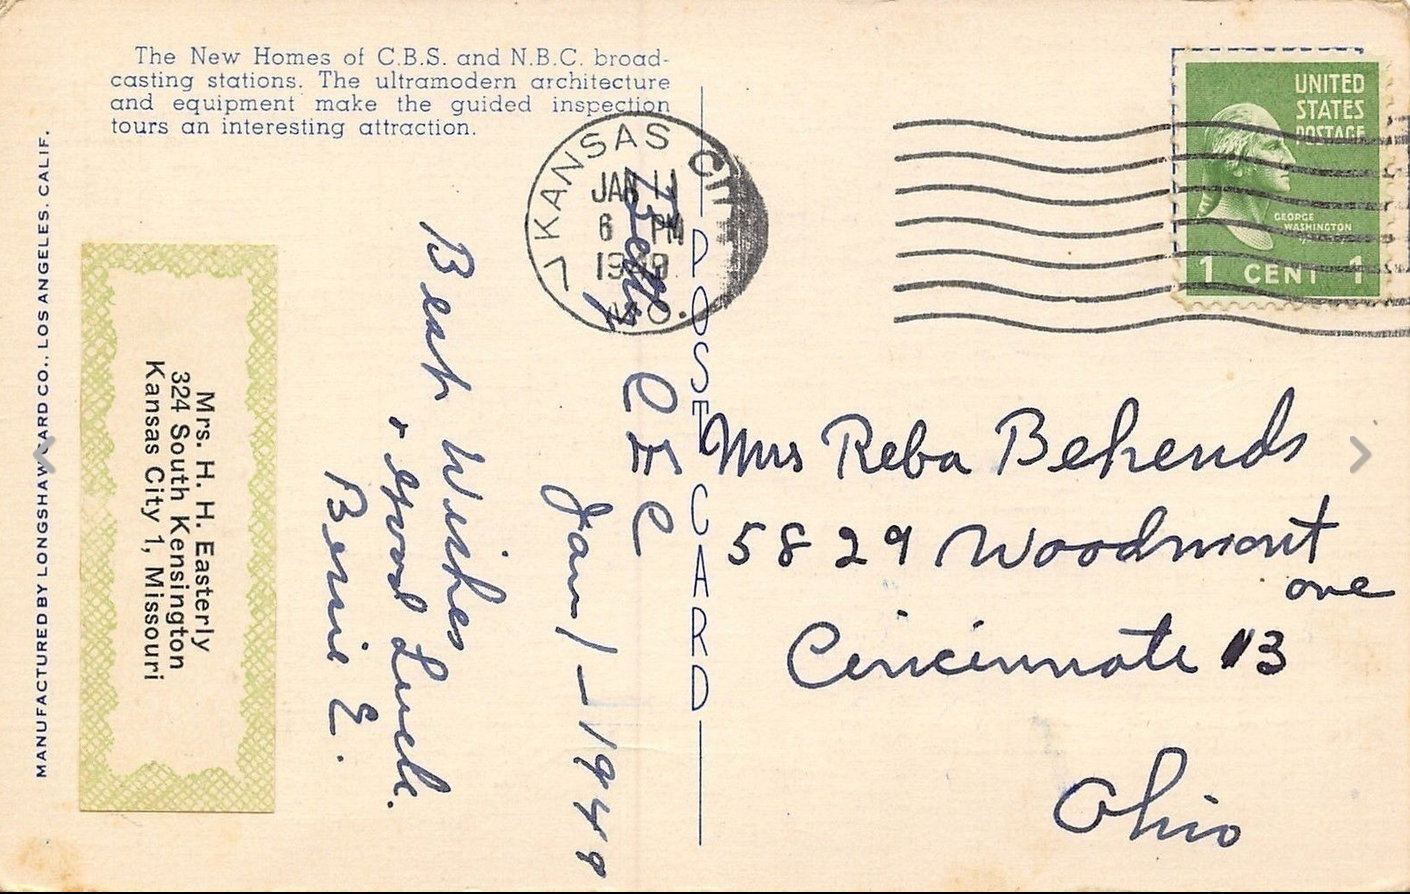 The New Homes of C.B.S. and N.B.C. broad-
casting stations. The ultramodern architecture
and equipment make the guided inspection
tours an interesting attraction.
MANUFACTURED BY LONGSHAW CARD CO., LOS ANGELES, CALIF.
Mrs. H. H. Easterly
324 South Kensington
Kansas City 1, Missouri
KANSAS CITY
JAN 11
6 PM
MO.
7
POST CARD
UNITED
STATES
POSTAGE
GEORGE
WASHINGTON
1 CENT 1
Jan 1 - 1948
Best Wishes
& Good Luck.
Bernie E.
Mrs Reba Behends
5829 Woodmont
ave
Cincinnati 13
Ohio